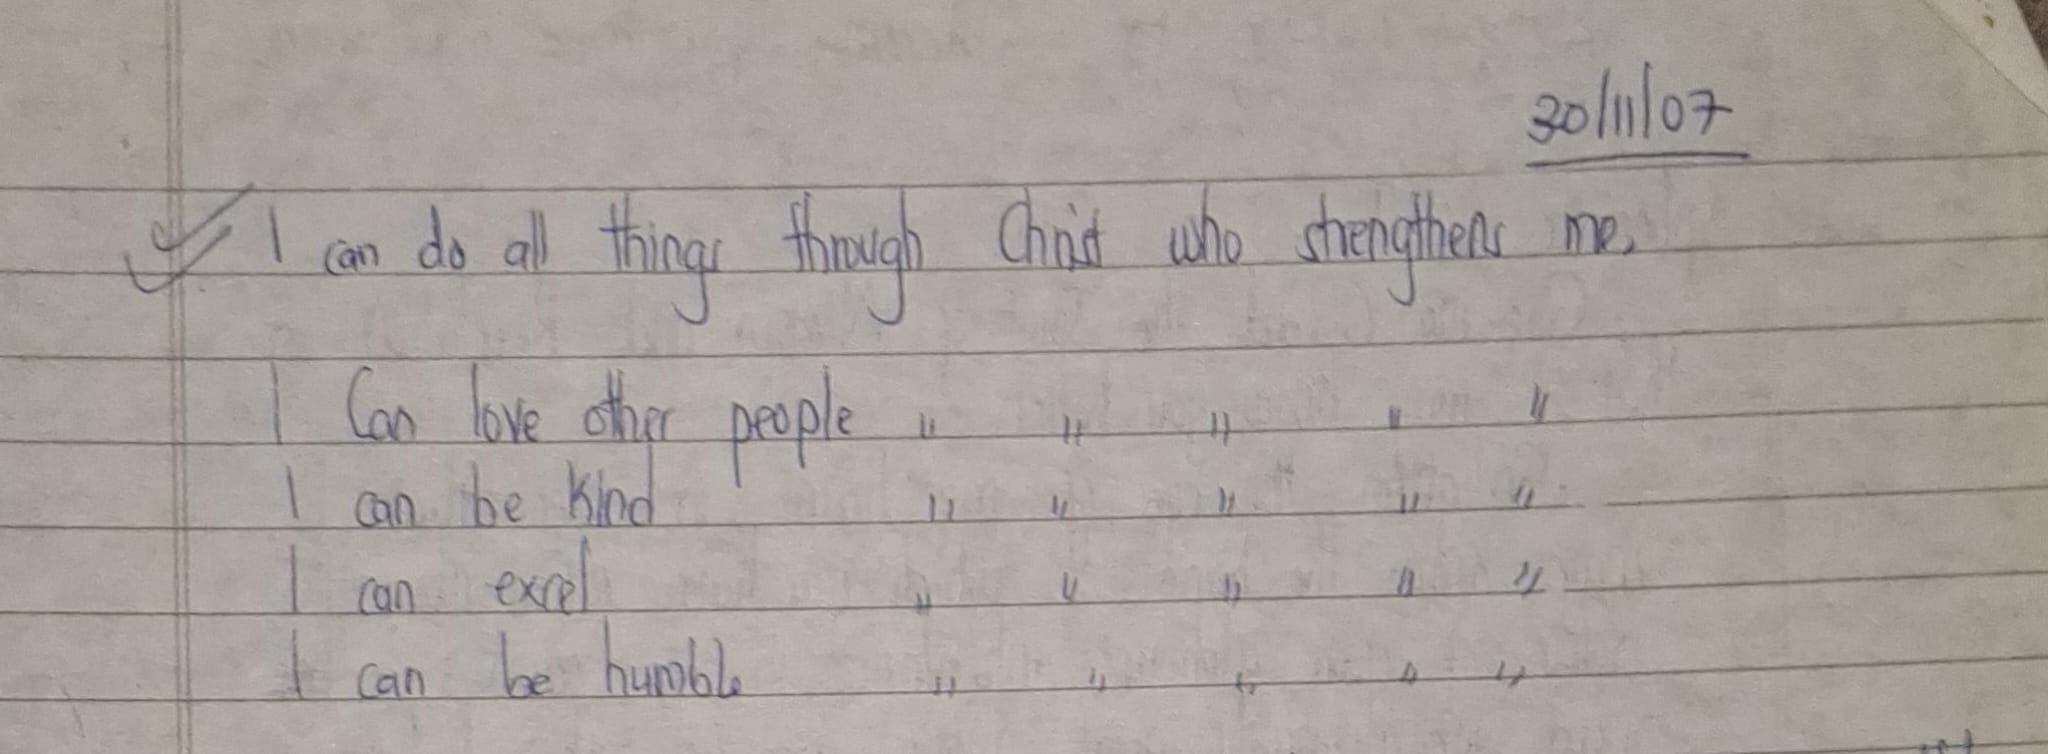 30/11/07
I can do all things through Christ who strengthens me,
I Can love other people " " " " "
I can be kind " " " " "
I can excel " " " " "
I can be humble " " " " "